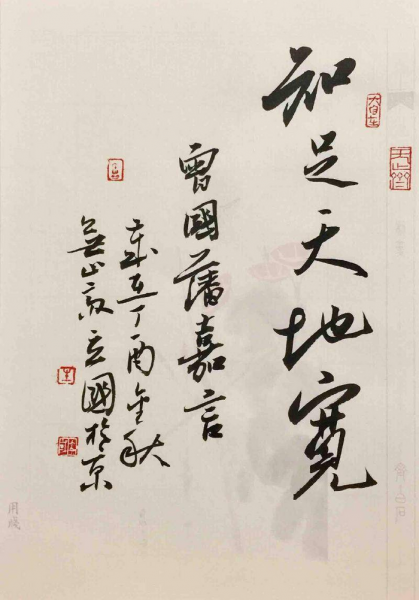 知足天地寬
曾國藩嘉言
歲在丁酉金秋
立國於京
用箋